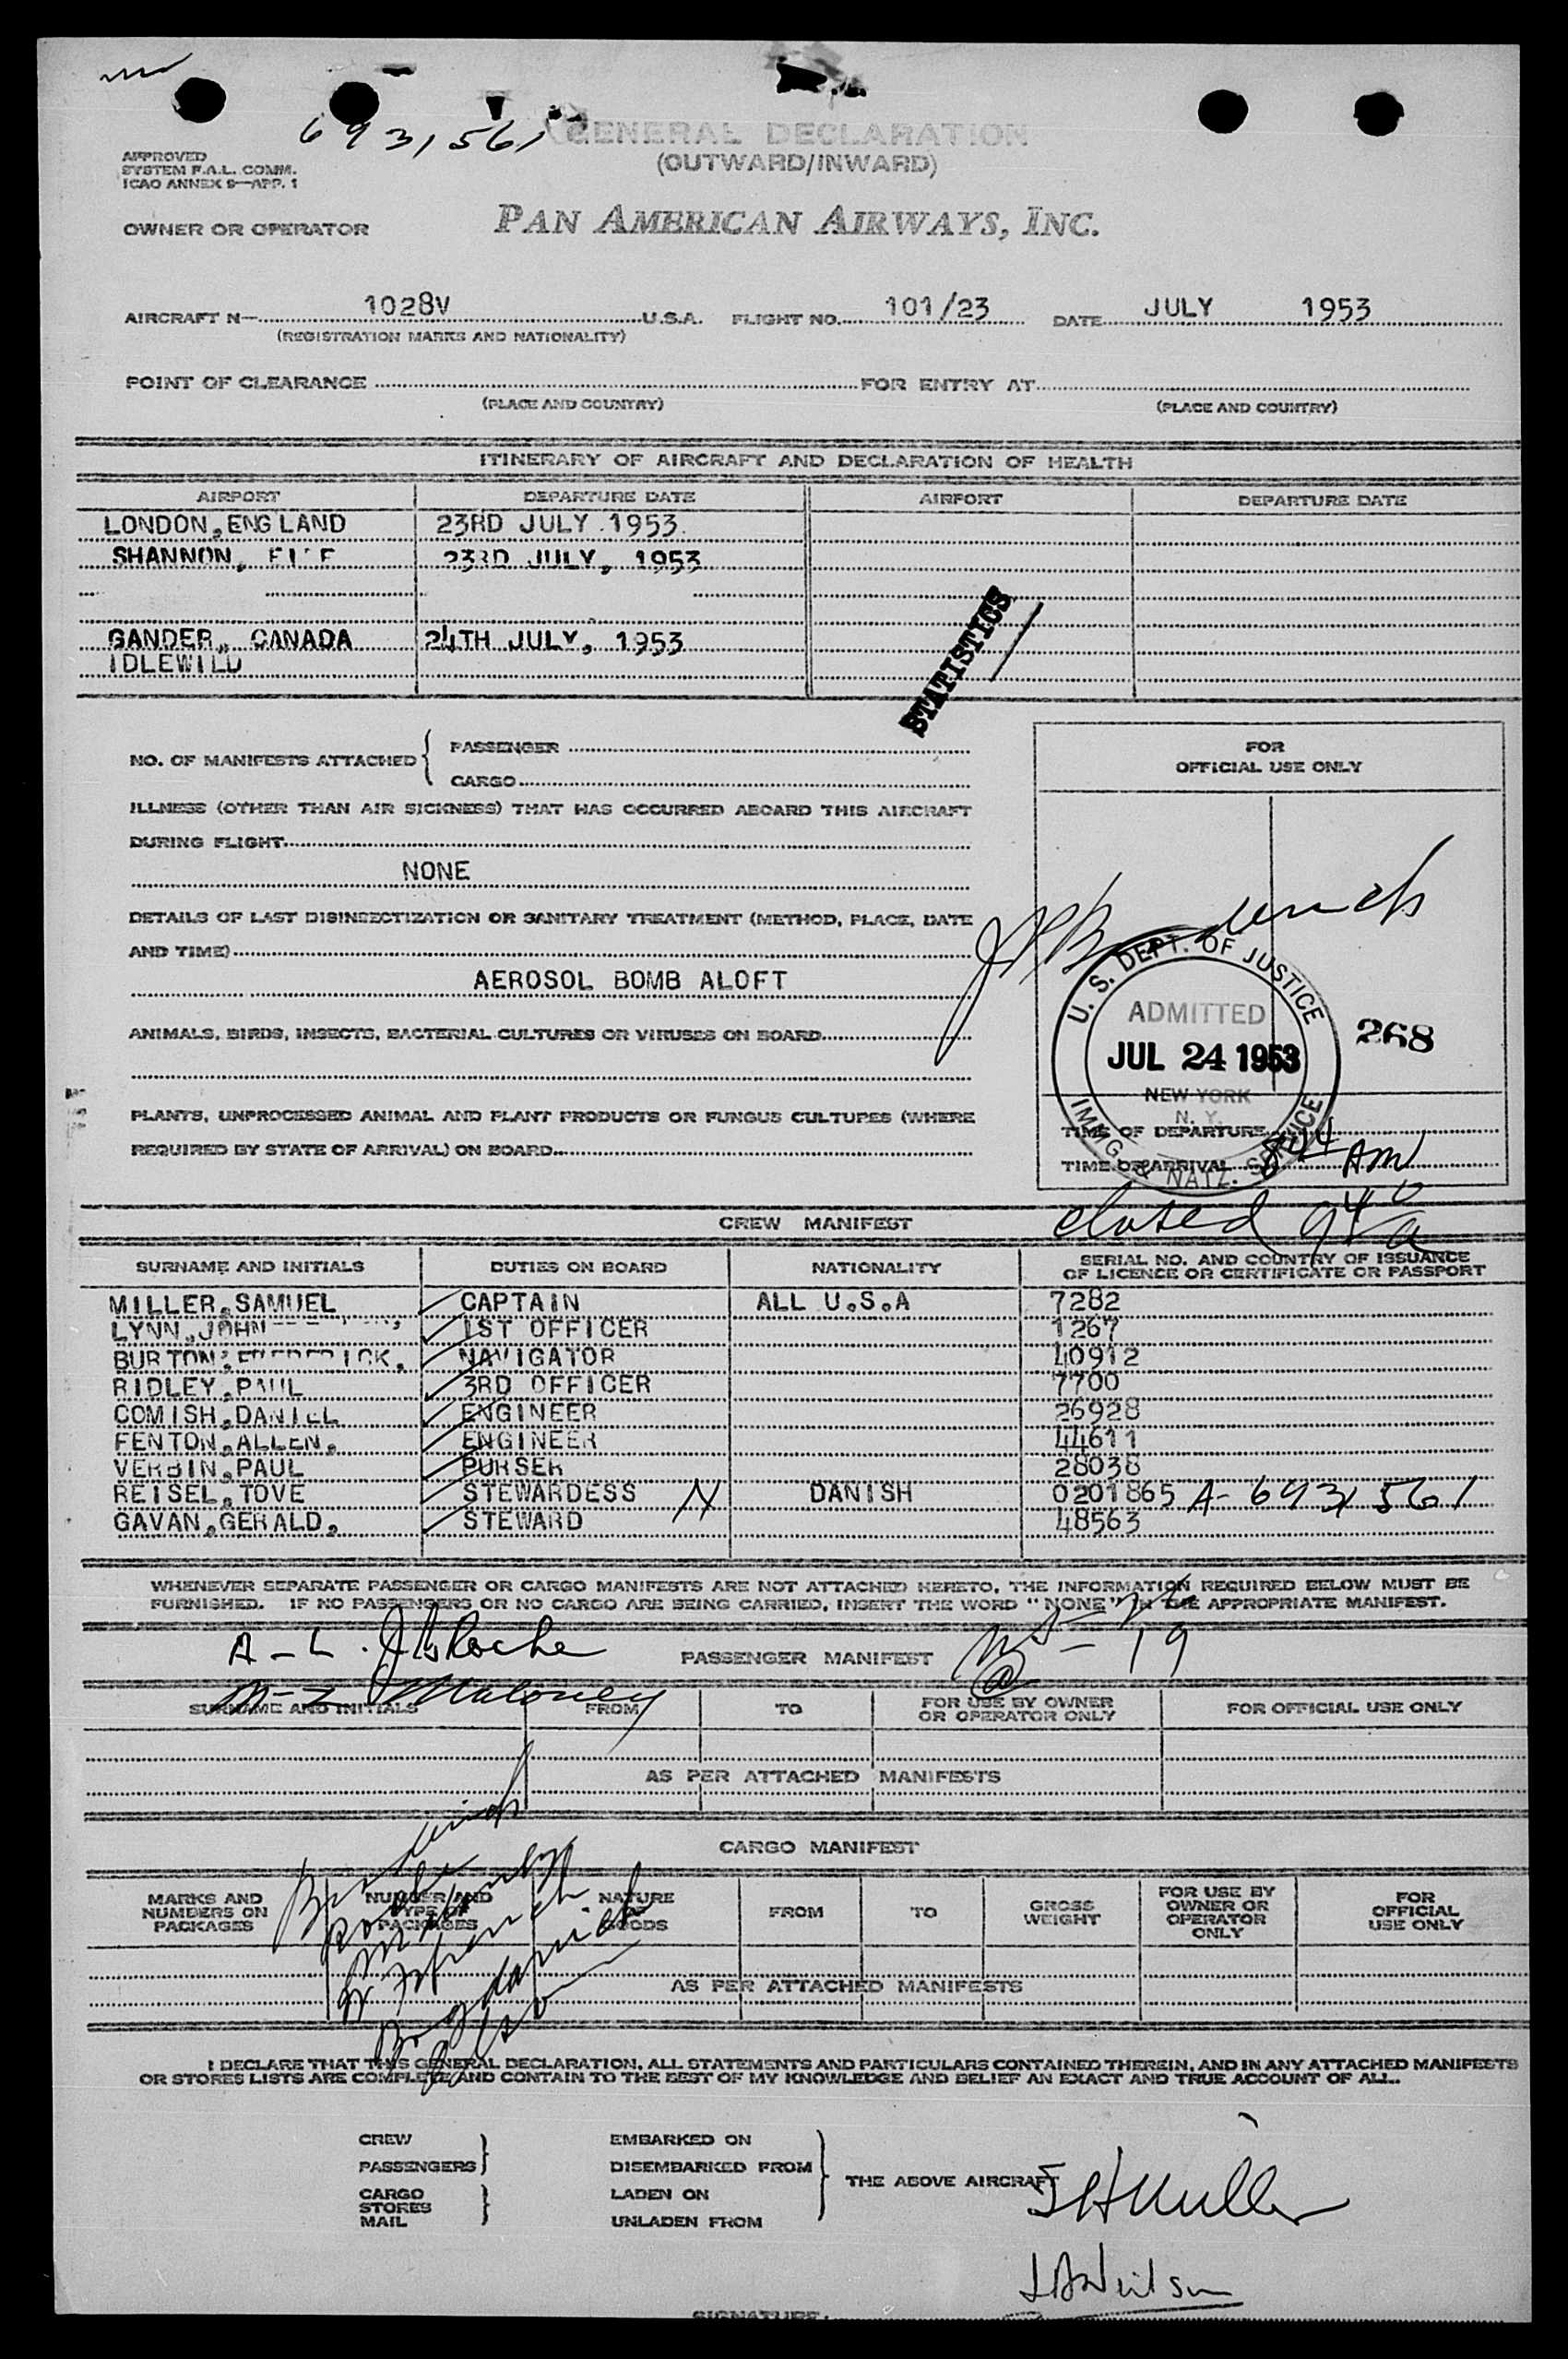 6931561
GENERAL DECLARATION
(OUTWARD/INWARD)
APPROVED
SYSTEM F.A.L. COMM.
ICAO ANNEX 9—APP. 1
OWNER OR OPERATOR PAN AMERICAN AIRWAYS, INC.
AIRCRAFT N— 1028V U.S.A. FLIGHT NO. 101/23 DATE JULY 1953
(REGISTRATION MARKS AND NATIONALITY)
POINT OF CLEARANCE FOR ENTRY AT
(PLACE AND COUNTRY) (PLACE AND COUNTRY)
ITINERARY OF AIRCRAFT AND DECLARATION OF HEALTH
AIRPORT DEPARTURE DATE AIRPORT DEPARTURE DATE
LONDON, ENGLAND 23RD JULY.1953.
SHANNON, 23RD JULY, 1953
GANDER, CANADA 24TH JULY, 1953
IDLEWILD
STATISTICS
NO. OF MANIFESTS ATTACHED { PASSENGER
CARGO
FOR
OFFICIAL USE ONLY
ILLNESS (OTHER THAN AIR SICKNESS) THAT HAS OCCURRED ABOARD THIS AIRCRAFT
DURING FLIGHT
NONE
DETAILS OF LAST DISINSECTIZATION OR SANITARY TREATMENT (METHOD, PLACE, DATE
AND TIME)
AEROSOL BOMB ALOFT
ANIMALS, BIRDS, INSECTS, BACTERIAL CULTURES OR VIRUSES ON BOARD
PLANTS, UNPROCESSED ANIMAL AND PLANT PRODUCTS OR FUNGUS CULTURES (WHERE
REQUIRED BY STATE OF ARRIVAL) ON BOARD
U. S. DEPT. OF JUSTICE
ADMITTED
JUL 24 1953
NEW YORK
N. Y.
IMMIG. & NATZ. SERVICE
268
TIME OF DEPARTURE
TIME OF ARRIVAL 844 AM
closed 940a
CREW MANIFEST
SURNAME AND INITIALS DUTIES ON BOARD NATIONALITY SERIAL NO. AND COUNTRY OF ISSUANCE
OF LICENCE OR CERTIFICATE OR PASSPORT
MILLER,SAMUEL CAPTAIN ALL U.S.A 7282
LYNN,JOHN 1ST OFFICER 1267
BURTON,FREDERICK. NAVIGATOR 40912
RIDLEY,PAUL 3RD OFFICER 7700
COMISH,DANIEL ENGINEER 26928
FENTON,ALLEN. ENGINEER 44611
VERBIN,PAUL PURSER 28038
REISEL,TOVE STEWARDESS N DANISH 0201865 A-6931561
GAVAN,GERALD. STEWARD 48563
WHENEVER SEPARATE PASSENGER OR CARGO MANIFESTS ARE NOT ATTACHED HERETO, THE INFORMATION REQUIRED BELOW MUST BE
FURNISHED. IF NO PASSENGERS OR NO CARGO ARE BEING CARRIED, INSERT THE WORD "NONE" IN THE APPROPRIATE MANIFEST.
A-L. Roche
PASSENGER MANIFEST
19
M-Z Maloney
SURNAME AND INITIALS FROM TO FOR USE BY OWNER
OR OPERATOR ONLY FOR OFFICIAL USE ONLY
AS PER ATTACHED MANIFESTS
CARGO MANIFEST
MARKS AND
NUMBERS ON
PACKAGES NUMBER AND
TYPE OF
PACKAGES NATURE
OF
GOODS FROM TO GROSS
WEIGHT FOR USE BY
OWNER OR
OPERATOR
ONLY FOR
OFFICIAL
USE ONLY
AS PER ATTACHED MANIFESTS
I DECLARE THAT THIS GENERAL DECLARATION, ALL STATEMENTS AND PARTICULARS CONTAINED THEREIN, AND IN ANY ATTACHED MANIFESTS
OR STORES LISTS ARE COMPLETE AND CONTAIN TO THE BEST OF MY KNOWLEDGE AND BELIEF AN EXACT AND TRUE ACCOUNT OF ALL.
CREW EMBARKED ON
PASSENGERS DISEMBARKED FROM
THE ABOVE AIRCRAFT SHMiller
CARGO LADEN ON
STORES
MAIL UNLADEN FROM
SIGNATURE.